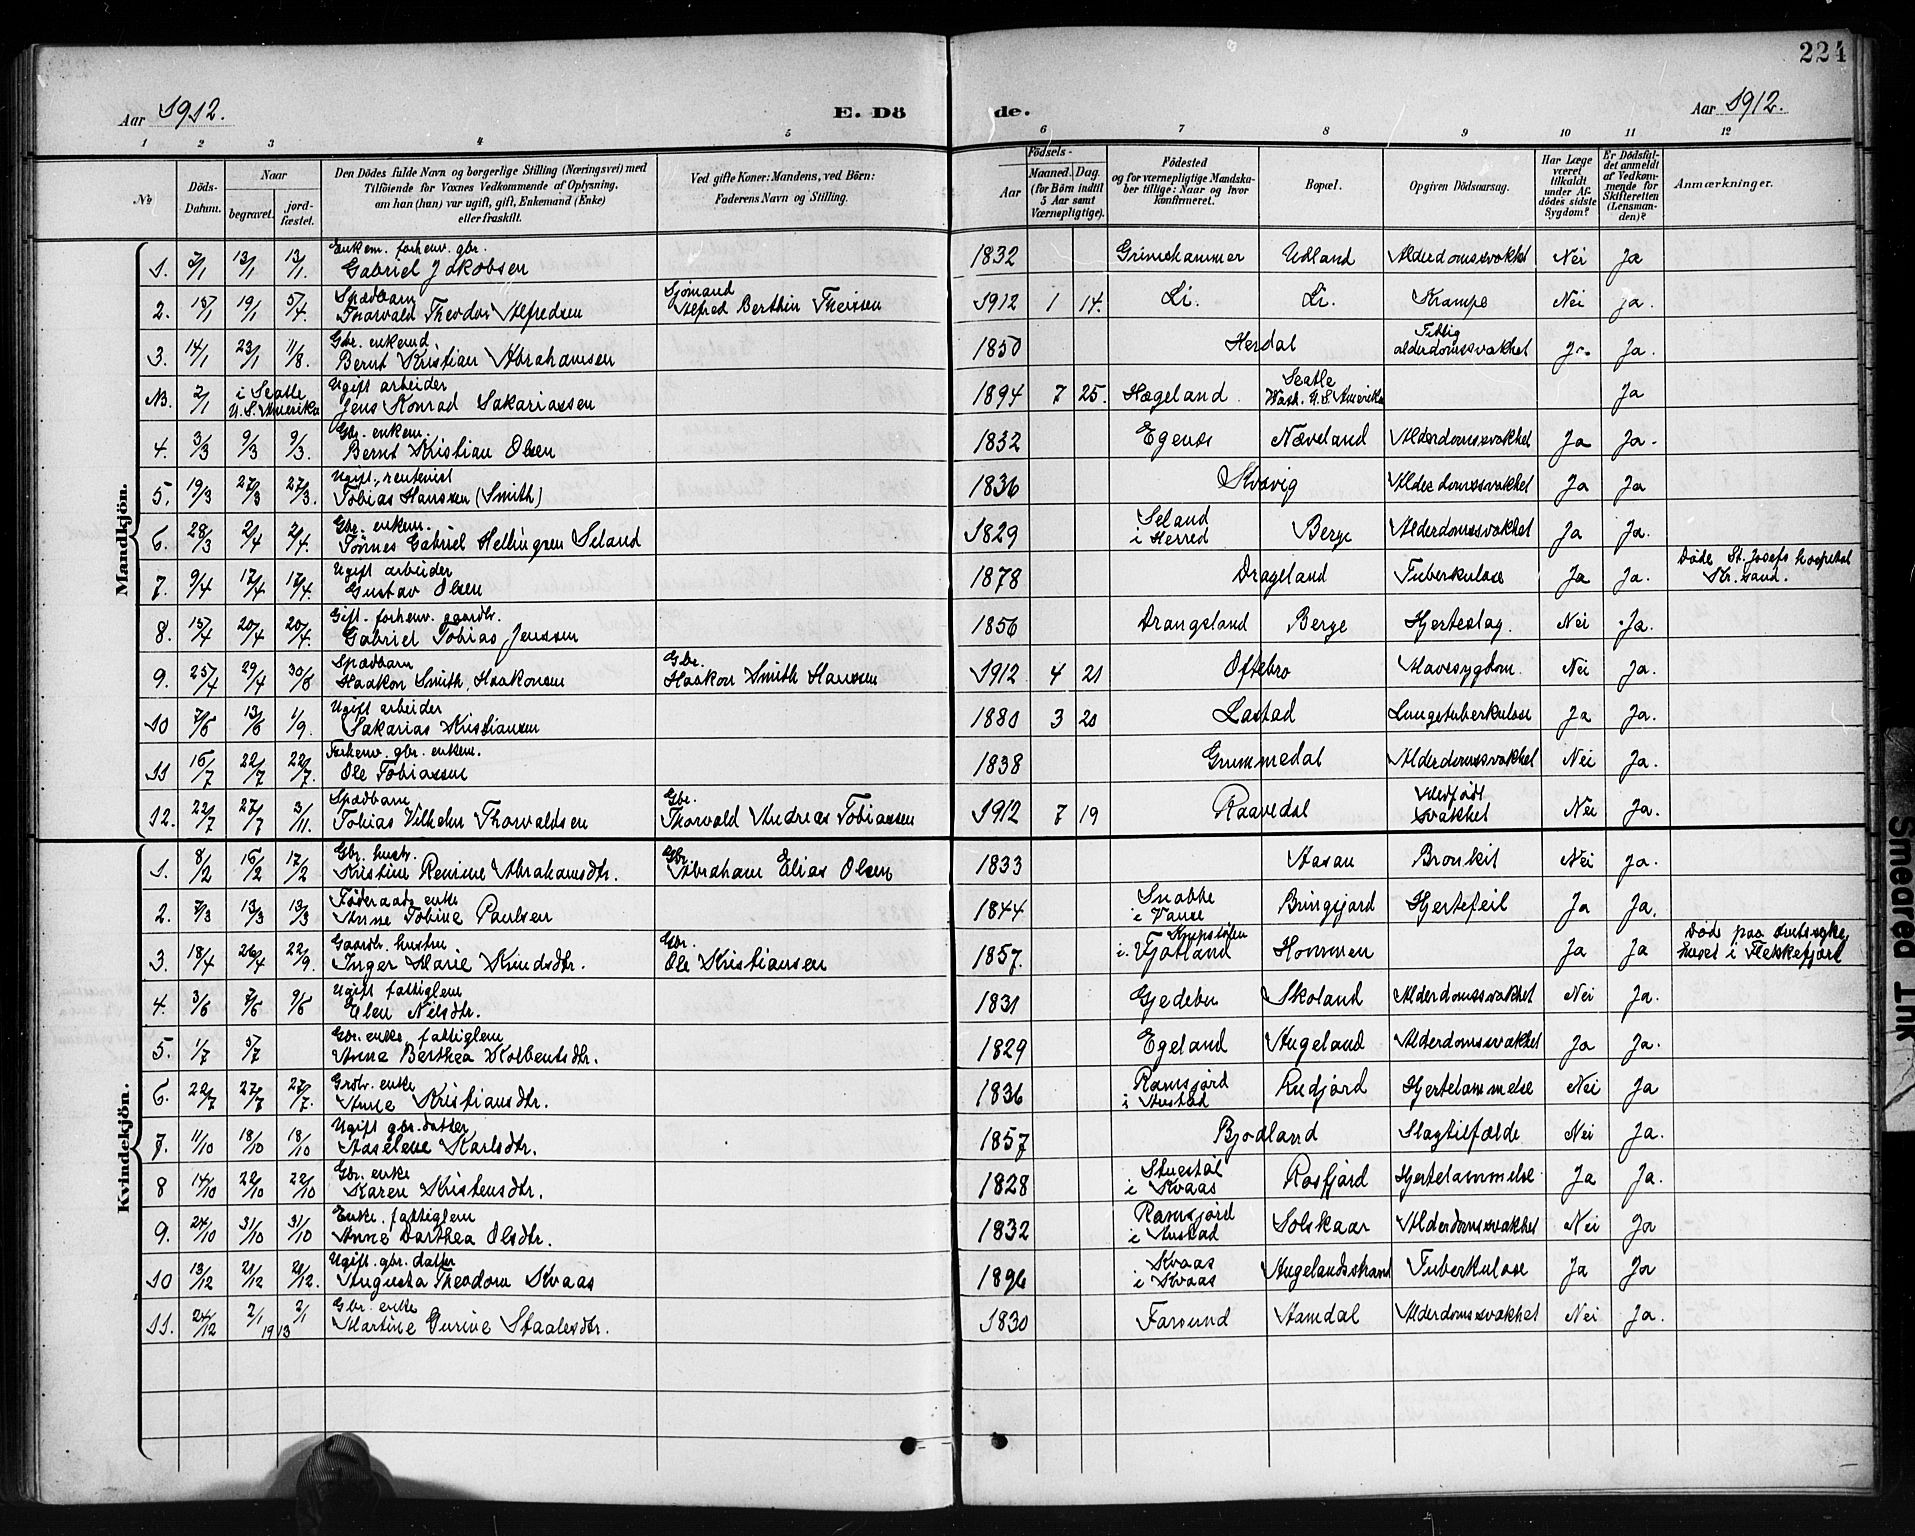 224
Aar 1912. E. Dö de. Aar 1912.
1 2 3 4 5 6 7 8 9 10 11 12
No
Döds-Datum.
Naar
begravet. jord-fæstet.
Den Dödes fulde Navn og borgerlige Stilling (Næringsvei) med
Tilföiende for Voxnes Vedkommende af Oplysning,
om han (hun) var ugift, gift, Enkemand (Enke)
eller fraskilt.
Ved gifte Koner: Mandens, ved Börn:
Faderens Navn og Stilling.
Födsels-
Aar Maaned. Dag.
(for Börn indtil
5 Aar samt
Værnepligtige).
Födested
og for værnepligtige Mandska-
ber tillige: Naar og hvor
konfirmeret.
Bopæl.
Opgiven Dödsaarsag.
Har Læge
været
tilkaldt
under Af-
dödes sidste
Sygdom?
Er Dödsfal-
det anmeldt
af Vedkom-
mende for
Skifteretten
(Lensman-
den)?
Anmærkninger.
Mandkjön.
Enkem. forhenv. gbr.
1. 3/1 13/1 13/1. Gabriel Jakobsen 1832 Grimshammer Udland Alderdomssvakhet Nei Ja
Spædbarn Sjømand
2. 15/1 19/1 5/4. Thorvald Theodor Alfredsen Alfred Berthin Theissen 1912 1 14. Li. Li. Krampe Nei Ja.
Gbr. enkemd.
3. 14/1 23/1 11/8. Bernt Kristian Abrahamsen 1850 Herdal alderdomssvakhet Ja Ja.
Ugift arbeider
2/1 i Seatle U.S. Amerika Jens Konrad Sakariassen 1894 7 25. Hægeland. Seatle Wash. U.S. Amerika Ja
Gbr. enkem.
4. 3/3 9/3 9/3. Bernt Kristian Olsen 1832 Egenæs Næveland Alderdomssvakhet Ja Ja.
Ugift, rentenist
5. 19/3 27/3 27/3. Tobias Hanssen (Smith) 1836 Kvavig Alderdomssvakhet Ja Ja
Gbr. enkem.
6. 28/3 2/4 2/4. Tønnes Gabriel Hellingsen Seland 1829 Seland i Herred Berge Alderdomssvakhet Ja Ja.
Ugift arbeider
7. 9/4 17/4 17/4. Gustav Olsen 1878 Drageland Tuberkulose Ja Ja. Døde St. Josefs hospital Kr. sand.
Gift. forhenv. gaardbr.
8. 15/4 20/4 20/4. Gabriel Tobias Jenssen 1856 Drangsland Berge Hjerteslag. Nei Ja.
Spædbarn Gbr.
9. 25/4 29/4 30/6 Haakon Smith Haakonsen Haakon Smith Hanssen 1912 4 21 Oftebro Mavesygdom. Nei Ja.
Ugift arbeider
10 7/6 13/6 1/9. Sakarias Kristiansen 1880 3 20 Lastad Lungetuberkulose Ja Ja.
Forhenv. gbr. enkem.
11 16/7 22/7 22/7. Ole Tobiassen 1838 Grummedal Alderdomssvakhet Nei Ja.
Spædbarn Gbr.
12. 22/7 27/7 3/11. Tobias Vilhelm Thorvaldsen Thorvald Andreas Tobiassen 1912 7 19 Raavedal Medfødt svakhet Nei Ja.
Kvindekjön.
Gbr. hustr. Gbr.
1. 8/2 16/2 17/2 Kristine Renine Abrahamsdtr. Abraham Elias Olsen 1833 Aasan Bronkit Nei Ja.
Føderaads enke
2. 7/3 13/3 13/3 Anne Tobine Paulsen 1844 Snabbe i Vanse Bringsjord Hjertefeil Ja Ja.
Gaardbr. hustru Gbr.
3. 18/4 26/4 22/9. Inger Marie Knudsdtr. Ole Kristiansen 1857. i Fjotland Hommen Ja Ja Død paa amtssyke-huset i Flekkefjord
Ugift fattiglem
4. 3/6 7/6 9/6 Elen Nilsdtr. 1831 Gjedebu Skoland Alderdomssvakhet Nei Ja.
Gbr. enke, fattiglem
5. 1/7 5/7 Anne Berthea Kolbentsdtr. 1829 Egeland Augeland Alderdomssvakhet Ja Ja.
Grdbr. enke
6. 22/7 27/7 27/7. Anne Kristiansdtr. 1836 Ramsjord i Austad Rudjord Hjertelammelse Nei Ja
Ugift gbr. datter
7. 11/10 18/10 18/10 Aaselene Karlsdtr. 1857 Bjodland Slagtilfælde Nei Ja.
Gbr. enke
8 14/10 22/10 22/10 Karen Kristensdtr. 1828 Stuestøl i Kvaas Rosfjord Hjertelammelse Ja Ja.
Enke. fattiglem
9. 24/10 31/10 31/10 Anne Dorthea Olsdtr. 1832 Ramsjord i Austad Solskaar Alderdomssvakhet Nei Ja
Ugift. gbr. datter
10 13/12 21/12 21/12. Augusta Theodora Kvaas 1896 Kvaas i Kvaas Augelandsstrand Tuberkulose Ja Ja
Gbr. enke
11. 24/12 2/1 2/1 1913 Martine Gurine Staalesdtr. 1830 Farsund Aamdal Alderdomssvakhet Nei Ja.
Smeared Ink